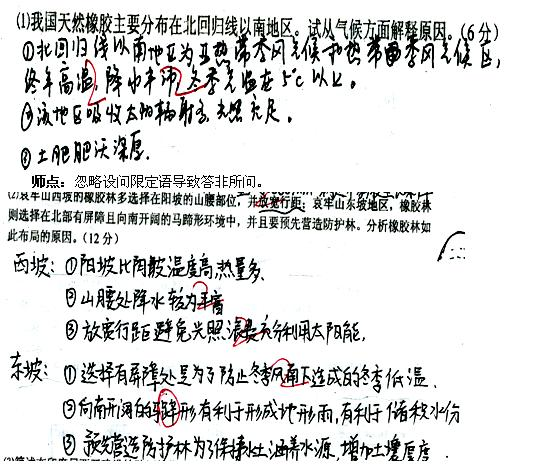 (1)我国天然橡胶主要分布在北回归线以南地区。试从气候方面解释原因。(6分)
①北回归线以南地区为亚热带季风气候和热带季风气候区,
终年高温,降水丰沛,冬季气温在5℃以上。
该地区吸收太阳辐射多,光照充足。
②土肥肥沃深厚.
师点:忽略设问限定语导致答非所问。
(2)哀牢山西坡的橡胶林多选择在阳坡的山腰部位,并放宽行距;哀牢山东坡地区,橡胶林
则选择在北部有屏障且向南开阔的马蹄形环境中,并且要预先营造防护林。分析橡胶林如
此布局的原因。(12分)
西坡:①阳坡比阴坡温度高,热量多.
②山腰处降水较为丰富
③放宽行距避免光照浪费充分利用太阳能.
东坡:①选择有屏障处是为了防止冬季风南下造成的冬季低温.
②向南开阔的形有利于形成地形雨,有利于储积水份
③预先营造防护林为了保持水土涵养水源.增加土壤厚度